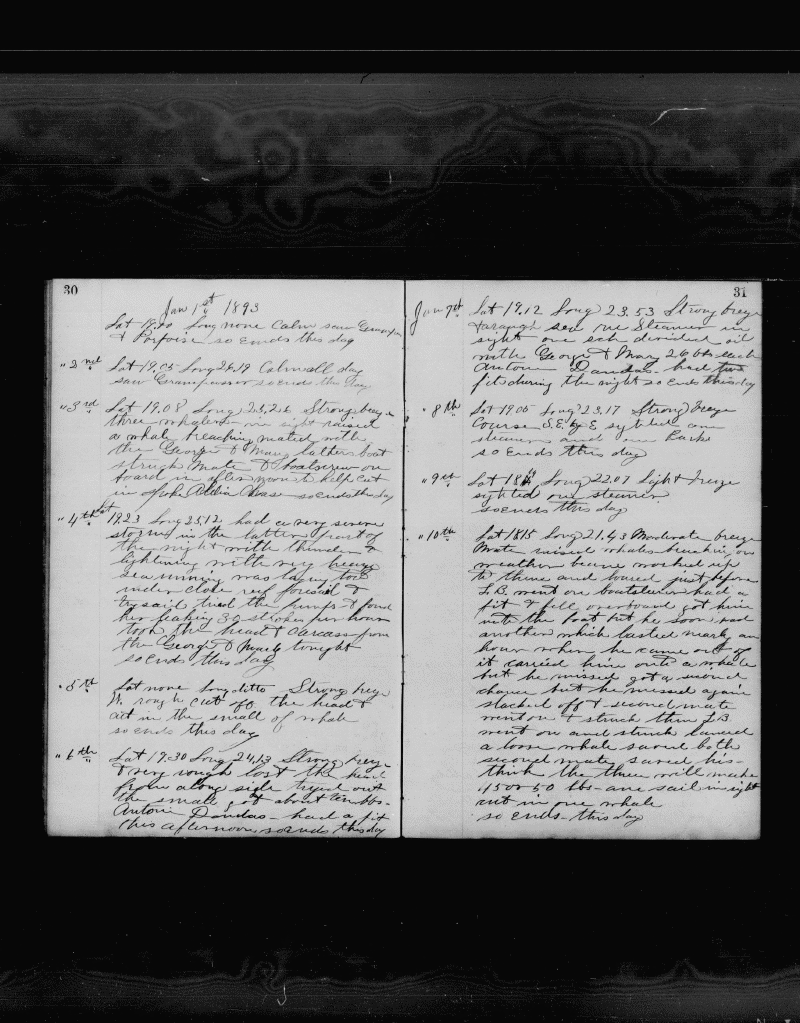 30
Jan 1st 1893
Lat 19.00 Long none Calm saw Grampus
& Porpoise so ends this day
" 2nd Lat 19.05 Long 26.19 Calm all day
saw Grampusses so ends this day
" 3rd Lat 19.08 Long 25.26 Strong breeze
three whalers in sight raised
a whale breaching mated with
the George & Mary latters boat
struck Mate & boatscrew on
board in afternoon to help cut
in spoke so ends this day
" 4th Lat 19.23 Long 25.12 had a very severe
storm in the latter part of
the night with thunder &
lightning with very heavy
sea running was laying too
under close reef foresail &
trysail tried the pumps & found
her leaking 30 strokes per hour
took the head & carcass from
the George & Mary tonight
so ends this day
" 5th Lat none Long ditto Strong breeze
rough cut off the head &
cut in the small of whale
so ends this day
" 6th Lat 19.30 Long 24.13 Strong breeze
& very rough lost the head
from along side tryed out
the small got about ten bbs-
Antone Dandas- had a fit
this afternoon so ends this day
31
Jan 7th Lat 19.12 Long 23.53 Strong breeze
& rough sea one Steamer in
sight one sch divided oil
with George & Mary 26 bbs each
Antone Dandas- had two
fits during the night so ends this day
" 8th Lat 19.05 Long 23.17 Strong breeze
Course S.E. by E sighted one
steamer and one Barke
so ends this day
" 9th Lat Long 22.07 Light breeze
sighted one steamer
so ends this day
" 10th Lat 18.15 Long 21.43 Moderate breeze
Mate raised whales breaching on
weather beam worked up
to them and lowered just before
L.B. went on boatsteerer had a
fit & fell overboard got him
into the boat but he soon had
another which lasted nearly an
hour when he came out of
it carried him onto a whale
but he missed got a second
chance but he missed again
slacked off & second mate
went on & struck then L.B.
went on and struck lowered
a loose whale saved both
second mate saved his-
think the three will make
45 or 50 bbs- one sail in sight
cut in one whale
so ends- this day